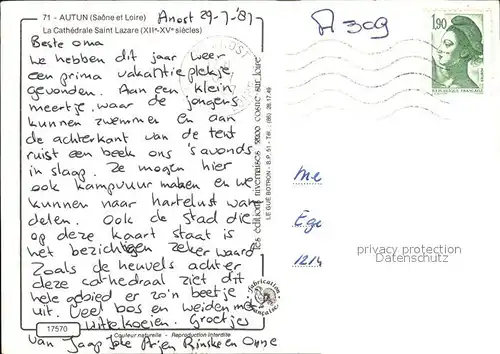 71 - AUTUN (Saône et Loire)
Anost 29-7-'87
La Cathédrale Saint Lazare (XIIe-XVe siècles)
Beste oma
We hebben dit jaar weer
een prima vakantieplekje
gevonden. Aan een klein
meertje waar de jongens
kunnen zwemmen en aan
de achterkant van de tent
ruist een beek ons 's avonds
in slaap. Ze mogen hier
ook kampvuur maken en we
kunnen naar hartelust wan
delen. Ook de stad die
op deze kaart staat is
het bezichtigen zeker waard
Zoals de heuvels achter
deze cathedraal ziet dit
hele gebied er zo'n beetje
uit. Veel bos en weiden met
witte koeien. Groetjes
van Jaap Joke Arjen Rinske en Onne
17570
Couleur naturelle - Reproduction interdite
les éditions nivernaises 58200 cosne sur loire
LE GUE BOTRON - B.P. 51 - Tél. (86) 28.17.49
fabrication française
A 309
1,90
REPUBLIQUE FRANCAISE
Me
Ege
1214
privacy protection
Datenschutz